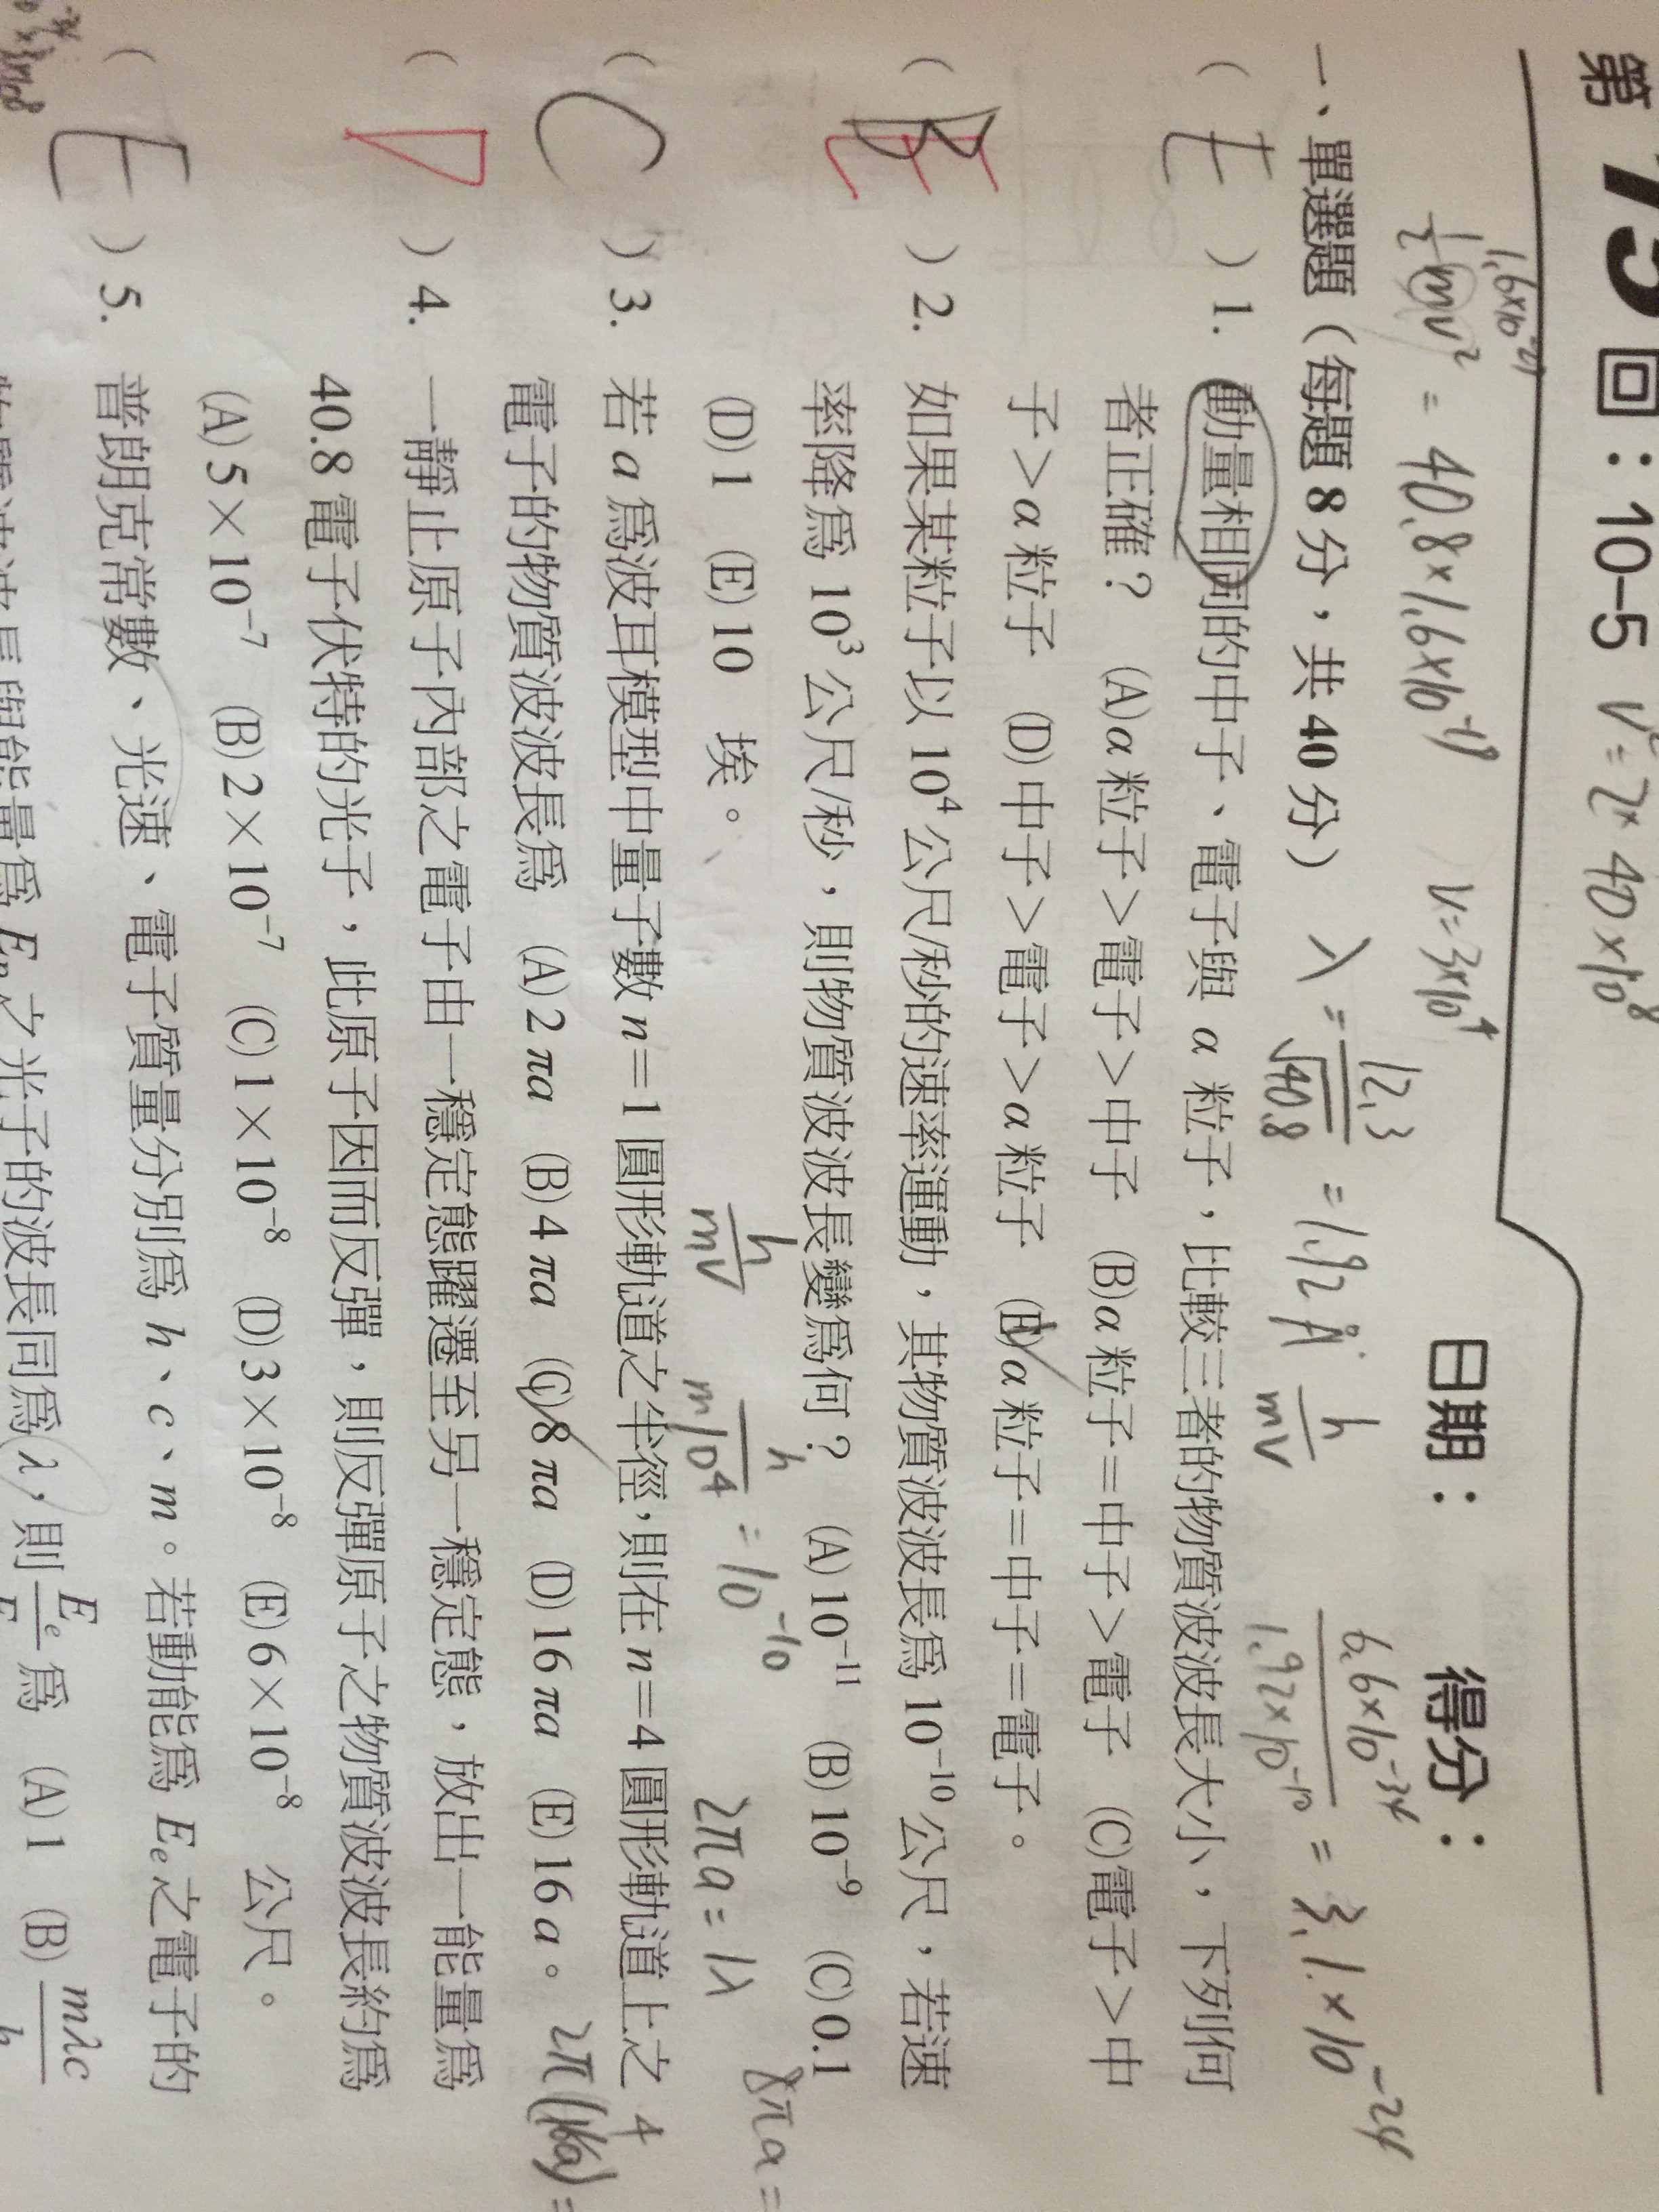 第 75 回：10-5 v²=2×40×10⁸
日期： 得分：
1.6×10⁻²⁷
½mv² = 40.8×1.6×10⁻¹⁹ v=3×10⁴
λ = 12.3/√40.8 = 1.92 Å h/mv 6.6×10⁻³⁴/1.92×10⁻¹⁰ = 3.1×10⁻²⁴
一、單選題（每題 8 分，共 40 分）
（ E ）1. 動量相同的中子、電子與 α 粒子，比較三者的物質波波長大小，下列何
者正確？ (A)α 粒子＞電子＞中子 (B)α 粒子＝中子＞電子 (C)電子＞中
子＞α 粒子 (D)中子＞電子＞α 粒子 (E)α 粒子＝中子＝電子。
（ E ）2. 如果某粒子以 10⁴ 公尺/秒的速率運動，其物質波波長為 10⁻¹⁰ 公尺，若速
率降為 10³ 公尺/秒，則物質波波長變為何？ (A)10⁻¹¹ (B)10⁻⁹ (C)0.1
(D)1 (E)10 埃。
h/mv h/m10⁴ = 10⁻¹⁰ 2πa = 1λ 8πa =
（ C ）3. 若 a 為波耳模型中量子數 n＝1 圓形軌道之半徑，則在 n＝4 圓形軌道上之
電子的物質波波長為 (A)2πa (B)4πa (C)8πa (D)16πa (E)16a。 2π(16a) =
（ D ）4. 一靜止原子內部之電子由一穩定態躍遷至另一穩定態，放出一能量為
40.8 電子伏特的光子，此原子因而反彈，則反彈原子之物質波波長約為
(A)5×10⁻⁷ (B)2×10⁻⁷ (C)1×10⁻⁸ (D)3×10⁻⁸ (E)6×10⁻⁸ 公尺。
（ E ）5. 普朗克常數、光速、電子質量分別為 h、c、m。若動能為 Eₑ 之電子的
物質波波長與能量為 Eₚ 之光子的波長同為 λ，則 Eₑ/E 為 (A)1 (B) mλc/h